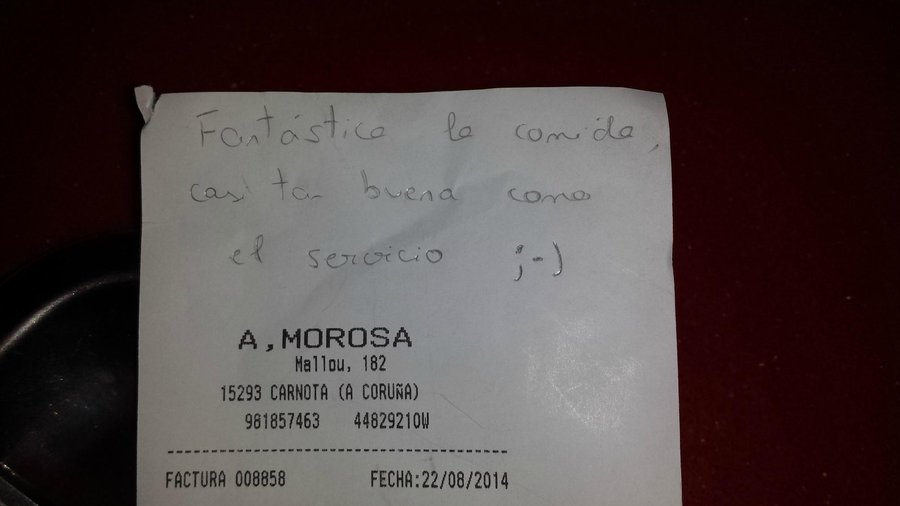 Fantástica la comida,
casi tan buena como
el servicio ;-)
A,MOROSA
Mallou, 182
15293 CARNOTA (A CORUÑA)
981857463 44829210W
FACTURA 008858 FECHA:22/08/2014